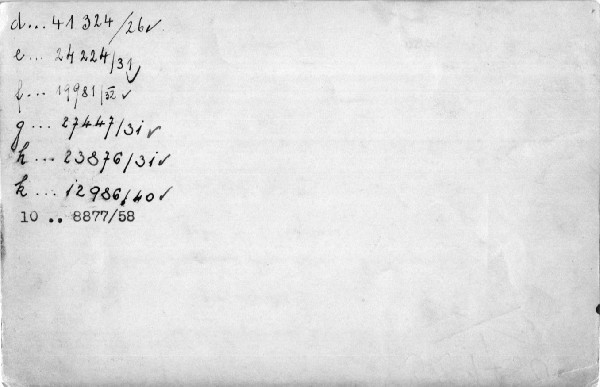 d... 41324/26✓
e... 24224/31✓
f... 19981/32✓
g... 27447/31✓
h... 23876/31✓
k... 12986/40✓
10 .. 8877/58